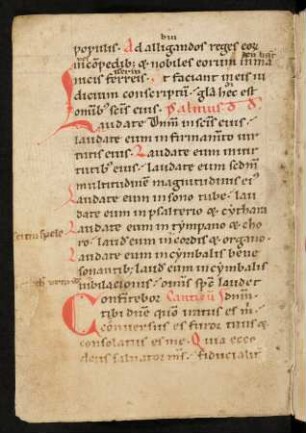 populis. Ad alligandos reges eor
in cōpedib; & nobiles eorum in ma
nicis ferreis. t faciant in eis iu
dicium conscriptū. gla hec est
omīb; scīs eius. psalmus d d
Laudate dnm in scīs eius.
laudate eum in firmamto uir
tutis eius. Laudate eum in uir
tutib; eius. laudate eum sedm
multitudinē magnitudinis ei
Laudate eum in sono tube. lau
date eum in psalterio & cythara
Laudate eum in tympano & cho
ro. laud eum in cordis & organo.
Laudate eum in cymbalis bene
sonantib; laud eum in cymbalis
iubilacionis. omīs spēs laudet
Confitebor Canticū
tibi dne qm iratus es m
conuersus es furor tuus &
consolatus es me. Quia ecce
deus saluator ms. fiducialit